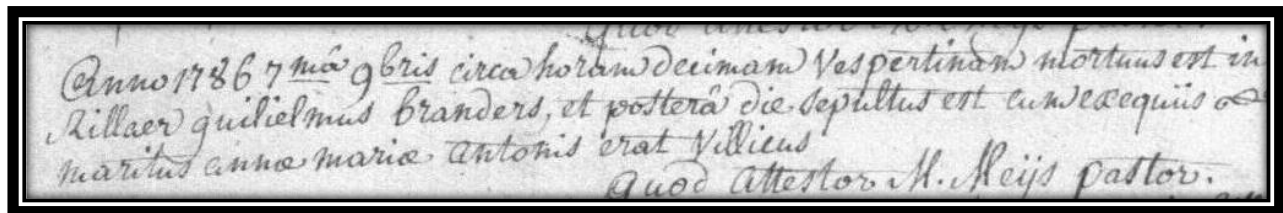 quod attestor M. Meijs pastor.
Anno 1786 7mâ 9bris circa horam decimam Vespertinam mortuus est in
Rillaer guilielmus branders, et posterâ die sepultus est cum exequiis &
maritus annæ mariæ Antonis erat Villicus
quod Attestor M. Meijs pastor.